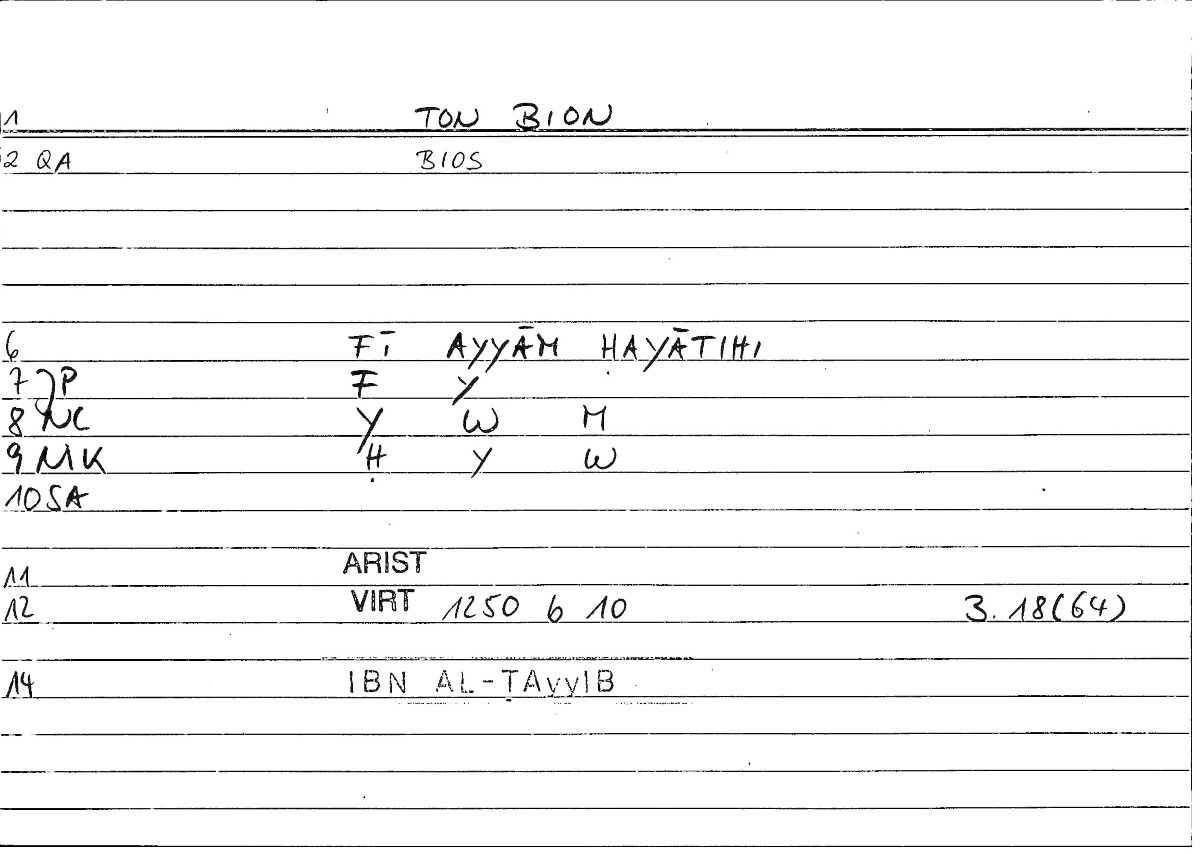 1 TON BION
2 QA BIOS
6 FĪ AYYĀM ḤAYĀTIHI
7 JP F Y
8 NC Y W M
9 MK Ḥ Y W
10 SA
11 ARIST
12 VIRT 1250 b 10 3.18(64)
14 IBN AL-ṬAyyIB